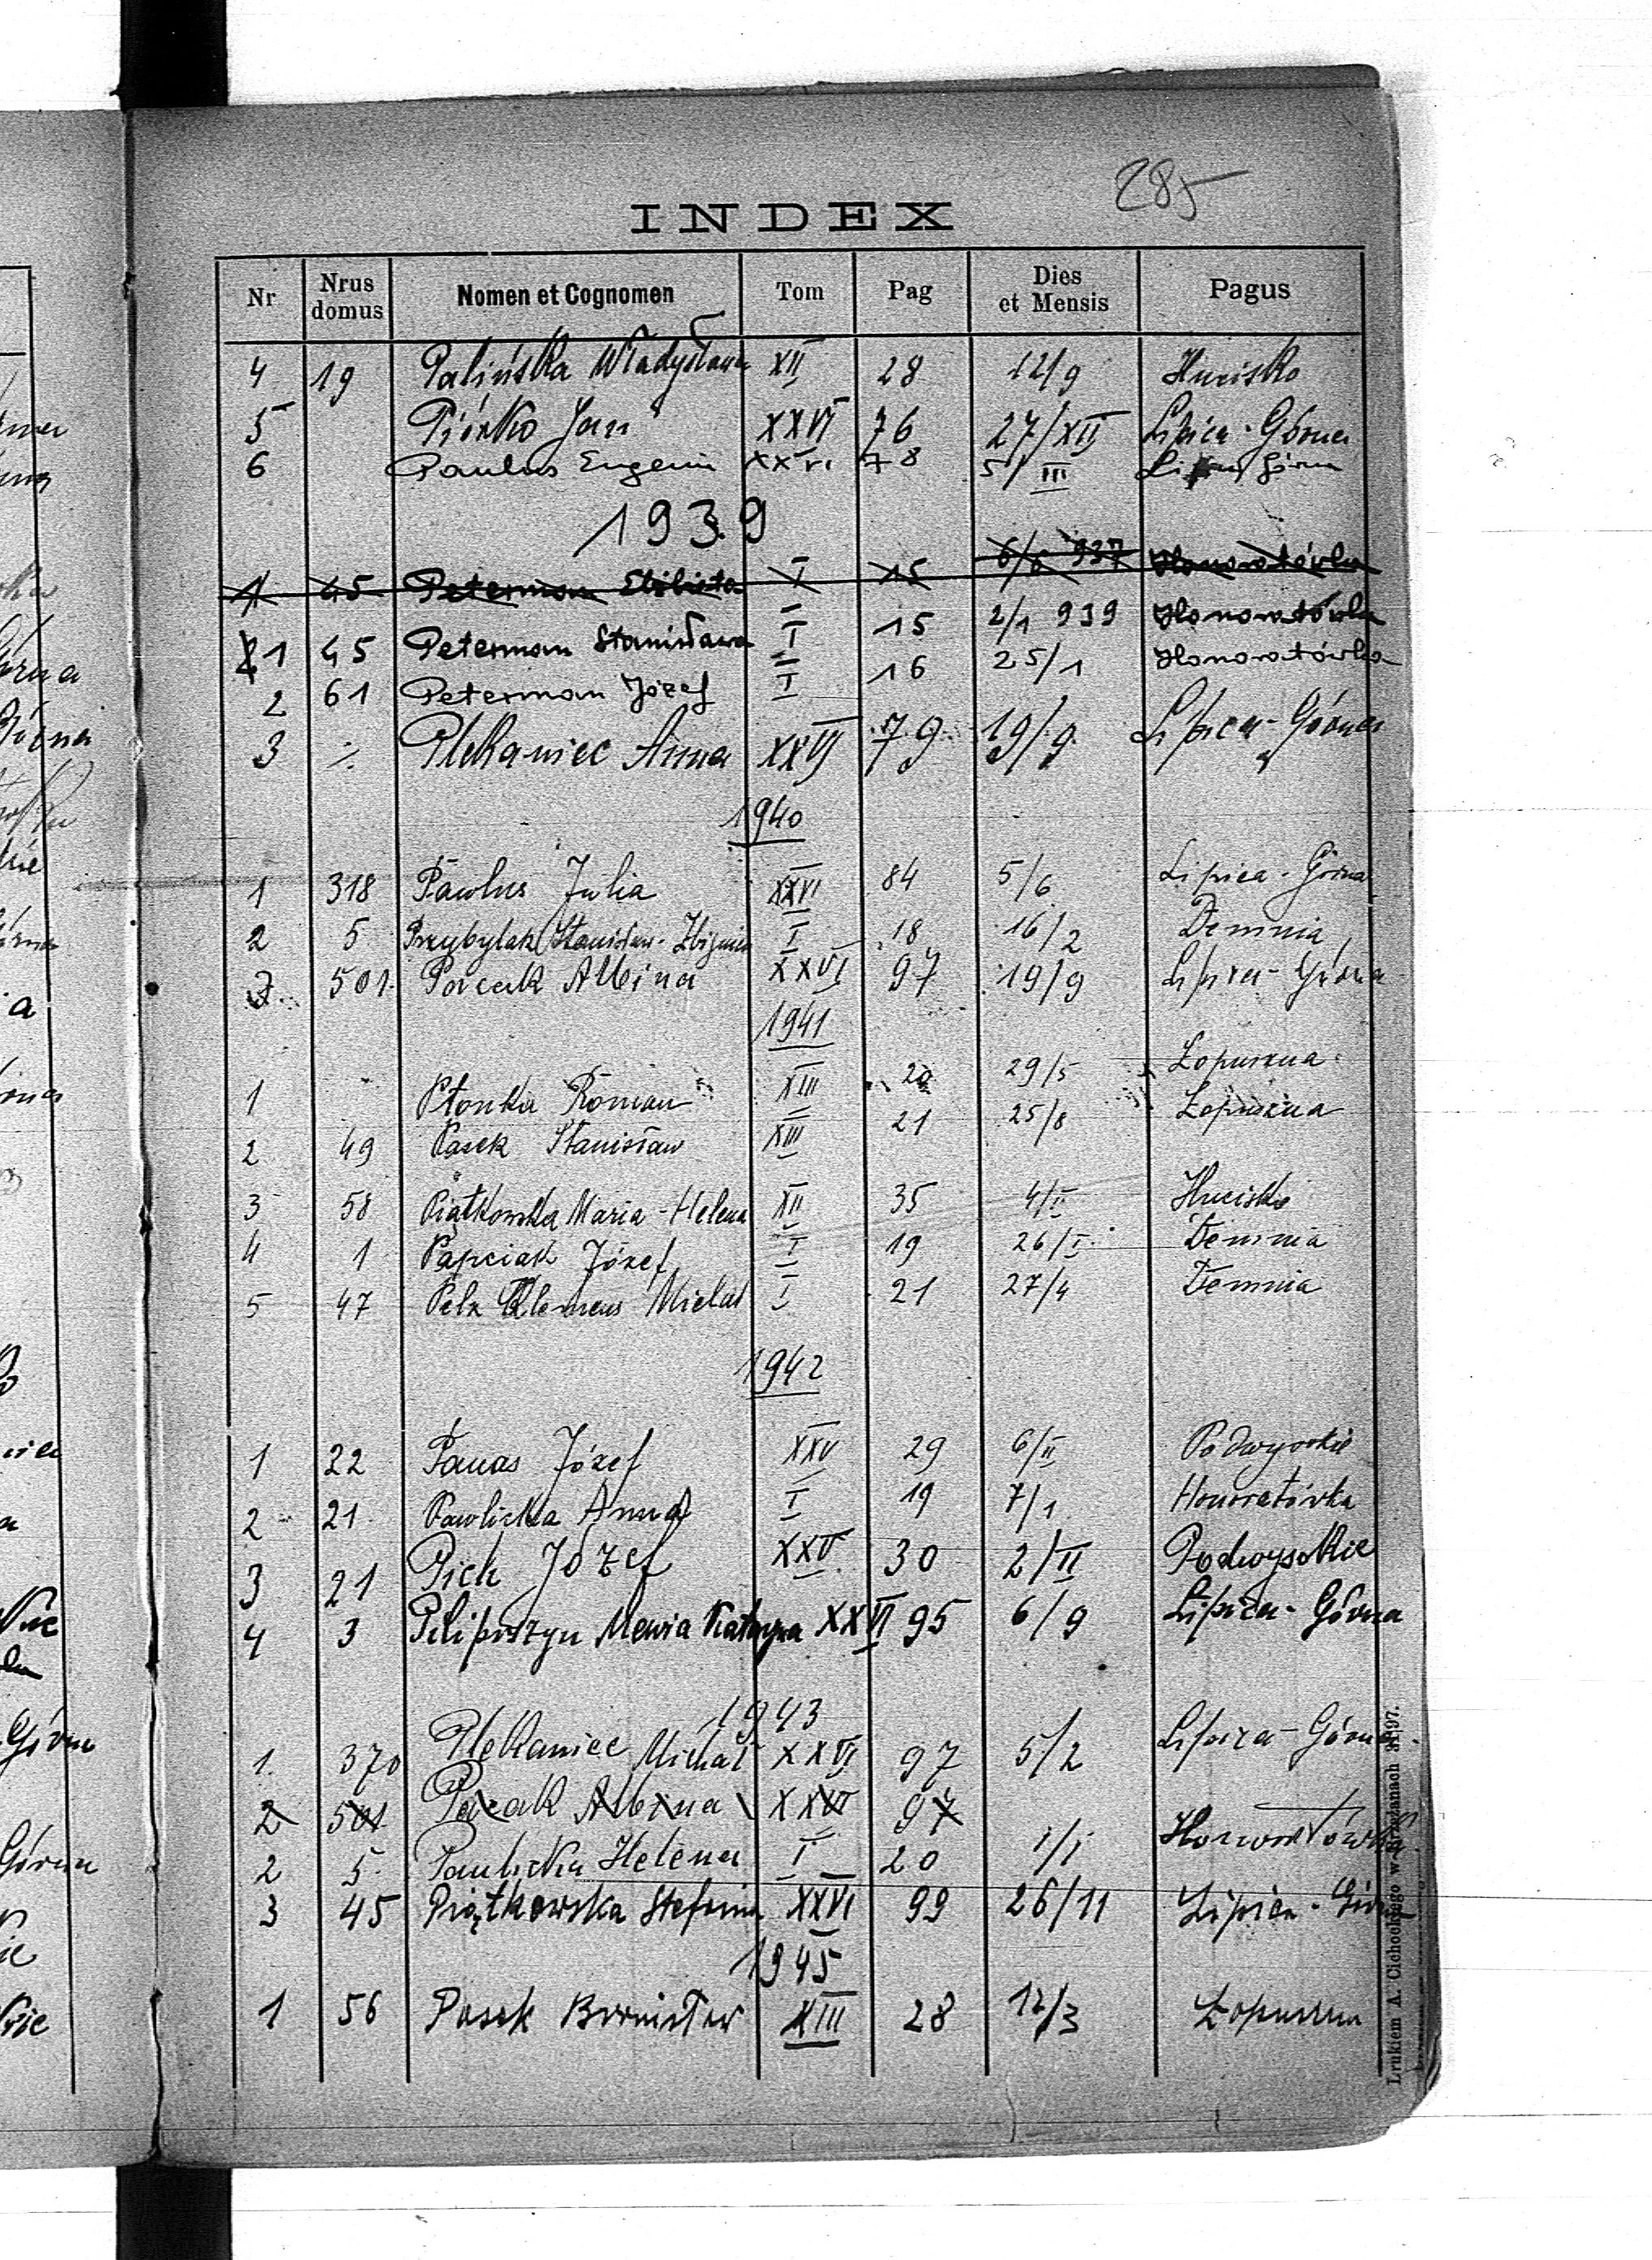 285
INDEX
Nr Nrus domus Nomen et Cognomen Tom Pag Dies et Mensis Pagus
4 19 Palińska Władysława XII 28 12/9 Hucisko
5 Piórko Jan XXVI 76 27/XII Lipica-Górna
6 Paulus Eugenia XXVI 78 5/III Lipica Górna
1939
1 45 Peterman Elżbieta I 15 6/6 937 Honoratówka
1 45 Peterman Stanisława I 15 2/1 939 Honoratówka
2 61 Peterman Józef I 16 25/1 Honoratówka
3 Plekaniec Anna XXVI 79 19/9 Lipica-Górna
1940
1 318 Pawlus Julia XXVI 84 5/6 Lipica-Górna
2 5 Przybylak Stanisław-Zbigniew I 18 16/2 Demnia
3 501 Albina XXVI 97 19/9 Lipica-Górna
1941
1 Płonka Roman XIII 20 29/5 Łopuszna
2 49 Pasek Stanisław XIII 21 25/8 Łopuszna
3 58 Piątkowska Maria-Helena XII 35 4/II Hucisko
4 1 Papciak Józef I 19 26/I Demnia
5 47 Pelz Klemens Michał I 21 27/4 Demnia
1942
1 22 Panas Józef XXV 29 6/II Podwysokie
2 21 Pawlicka Anna I 19 7/1 Honoratówka
3 21 Pich Józef XXV 30 2/II Podwysokie
4 3 Pilipiszyn Maria Katarzyna XXVI 95 6/9 Lipica-Górna
1943
1. 370 Plekaniec Michał XXVI 97 5/2 Lipica-Górna
2 501 Albina XXVI 97
2 5 Pawlicka Helena I 20 1/1 Honoratówka
3 45 Piątkowska Stefania XXVI 99 26/11 Lipica-Górna
1945
1 56 Pasek Bronisław XIII 28 12/3 Łopuszna
Drukiem A. Cichockiego w Brzeżanach 31/97.